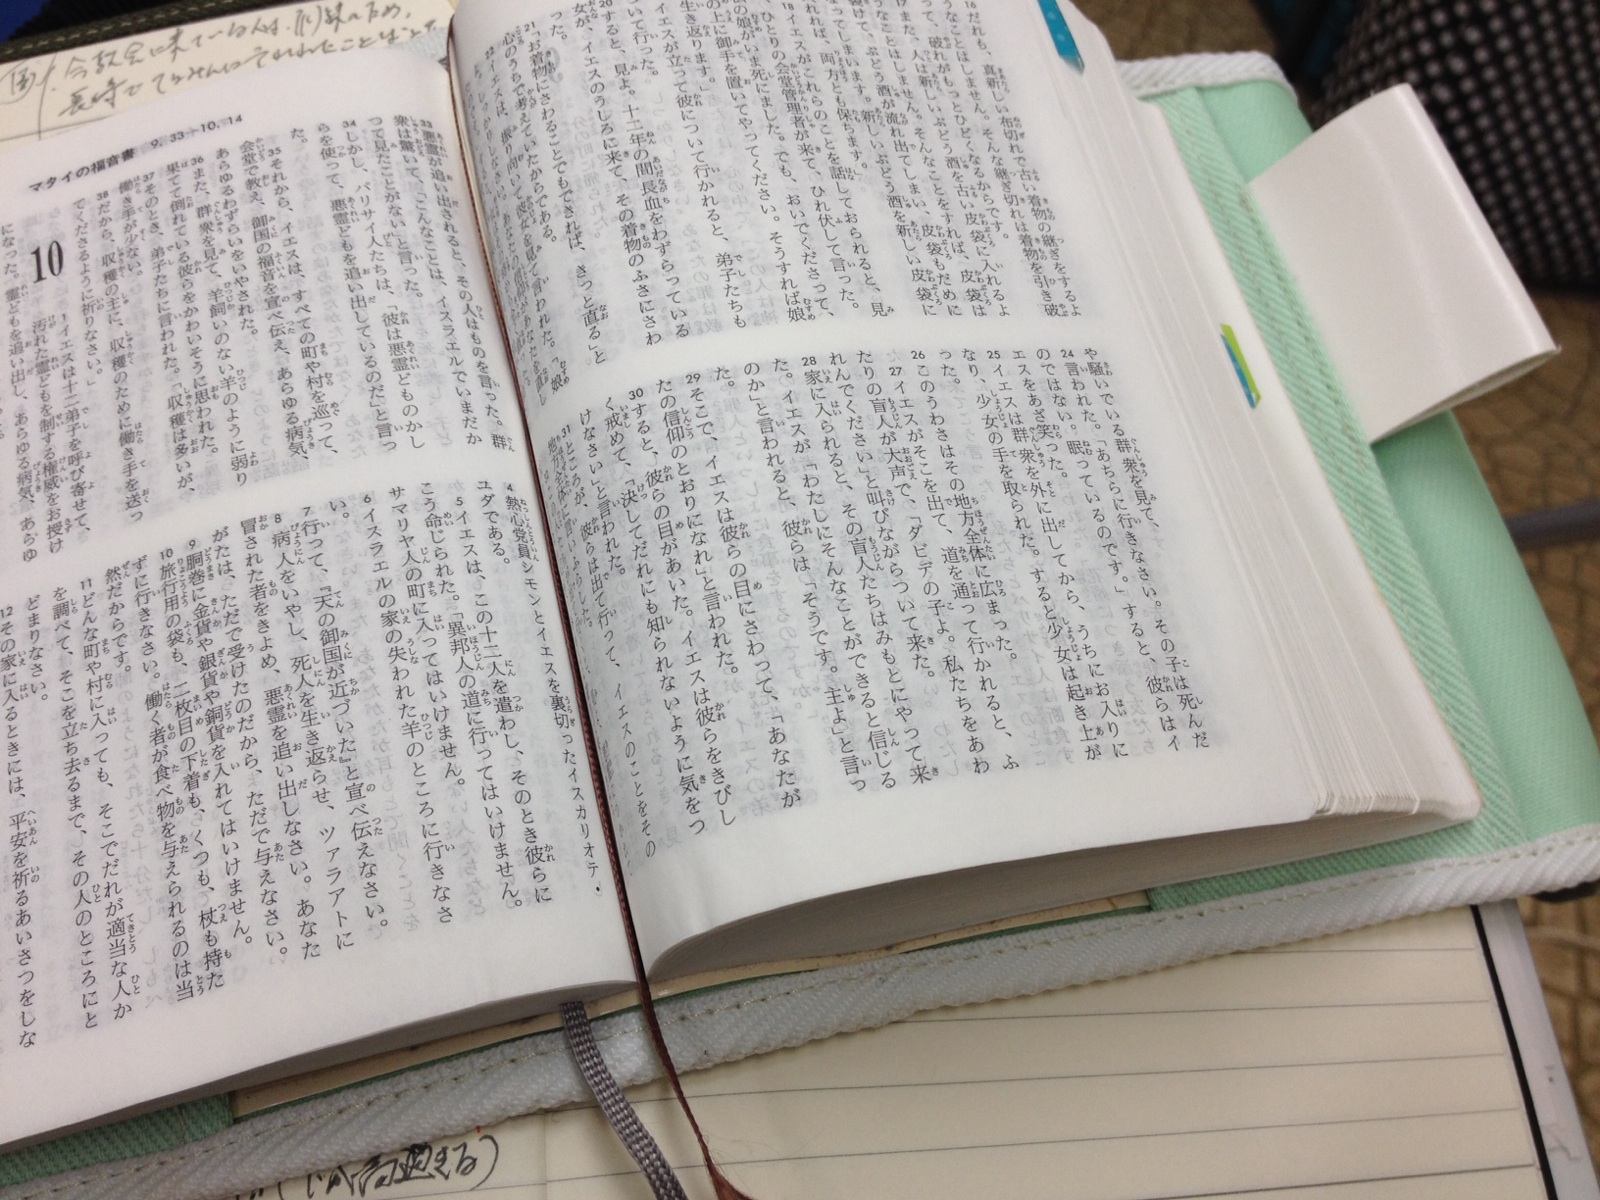 16だれも、真新しい布切れで古い着物の継ぎをするよ
うなことはしません。そんな継ぎ切れは着物を引き破
って、破れがもっとひどくなるからです。
うなことはしません。そんなことをすれば、皮袋は
裂けてしまいます。ぶどう酒が流れ出てしまい、皮袋もだめに
なってしまいます。新しいぶどう酒を新しい皮袋に
入れれば、両方とも保ちます。」
18イエスがこれらのことを話しておられると、見
よ。ひとりの会堂管理者が来て、ひれ伏して言った。
「私の娘がいま死にました。でも、おいでくださって、
娘の上に御手を置いてやってください。そうすれば娘
は生き返ります。」
イエスが立って彼について行かれると、弟子たちも
ついて行った。
20すると、見よ。十二年の間長血をわずらっている
女が、イエスのうしろに来て、その着物のふさにさわ
った。
21「お着物にさわることでもできれば、きっと直る」と
心のうちで考えていたからである。
22イエスは、振り向いて彼女を見て言われた。「娘
や騒いでいる群衆を見て、
24言われた。「あちらに行きなさい。その子は死んだ
のではない。眠っているのです。」すると、彼らはイ
エスをあざ笑った。
25イエスは群衆を外に出してから、うちにお入りに
なり、少女の手を取られた。すると少女は起き上が
った。
26このうわさはその地方全体に広まった。
27イエスがそこを出て、道を通って行かれると、ふ
たりの盲人が大声で、「ダビデの子よ。私たちをあわ
れんでください」と叫びながらついて来た。
28家に入られると、その盲人たちはみもとにやって来
た。イエスが「わたしにそんなことができると信じる
のか」と言われると、彼らは「そうです。主よ」と言っ
た。
29そこで、イエスは彼らの目にさわって、「あなたが
たの信仰のとおりになれ」と言われた。
30すると、彼らの目があいた。イエスは彼らをきびし
く戒めて、「決してだれにも知られないように気をつ
けなさい」と言われた。
31ところが、彼らは出て行って、イエスのことをその
地方全体に言いふらした。
マタイの福音書 9. 33→10. 14
33悪霊が追い出されると、その人はものを言った。群
衆は驚いて、「こんなことは、イスラエルでいまだか
つて見たことがない」と言った。
34しかし、パリサイ人たちは、「彼は悪霊どものかし
らを使って、悪霊どもを追い出しているのだ」と言っ
た。
35それから、イエスは、すべての町や村を巡って、
会堂で教え、御国の福音を宣べ伝え、あらゆる病気、
あらゆるわずらいをいやされた。
36また、群衆を見て、羊飼いのない羊のように弱り
果てて倒れている彼らをかわいそうに思われた。
37そのとき、弟子たちに言われた。「収穫は多いが、
働き手が少ない。
38だから、収穫の主に、収穫のために働き手を送っ
てくださるように祈りなさい。」
10
1イエスは十二弟子を呼び寄せて、
汚れた霊どもを制する権威をお授け
になった。霊どもを追い出し、あらゆる病気、あらゆ
4熱心党員シモンとイエスを裏切ったイスカリオテ・
ユダである。
5イエスは、この十二人を遣わし、そのとき彼らに
こう命じられた。「異邦人の道に行ってはいけません。
サマリヤ人の町に入ってはいけません。
6イスラエルの家の失われた羊のところに行きなさ
い。
7行って、『天の御国が近づいた』と宣べ伝えなさい。
8病人をいやし、死人を生き返らせ、ツァラアトに
冒された者をきよめ、悪霊を追い出しなさい。あなた
がたは、ただで受けたのだから、ただで与えなさい。
9胴巻に金貨や銀貨や銅貨を入れてはいけません。
10旅行用の袋も、二枚目の下着も、くつも、杖も持た
ずに行きなさい。働く者が食べ物を与えられるのは当
然だからです。
11どんな町や村に入っても、そこでだれが適当な人か
を調べて、そこを立ち去るまで、その人のところにと
どまりなさい。
12その家に入るときには、平安を祈るあいさつをしな